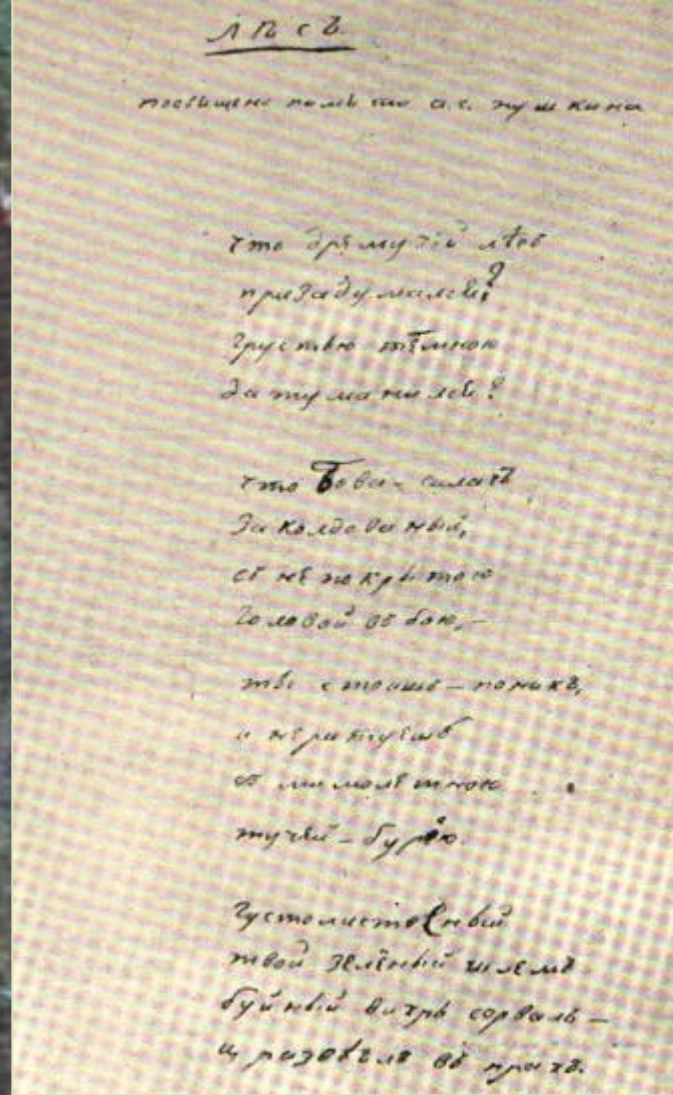 лѣсъ
посвищено памѣти а.с. пушкина
что дрѣмучій лѣсъ
призадумалси?
грустью тѣмною
затуманилси?
что Бова-силачъ
заколдованый,
съ не покрытою
головой въ бою,-
ты стоишь - поникъ,
и не ратуешь
съ мимолетною
тучей - бурею.
густолиствѣнный
твой зеленый шлемъ
буйный вихрь сорвалъ -
и развѣялъ въ прахъ.